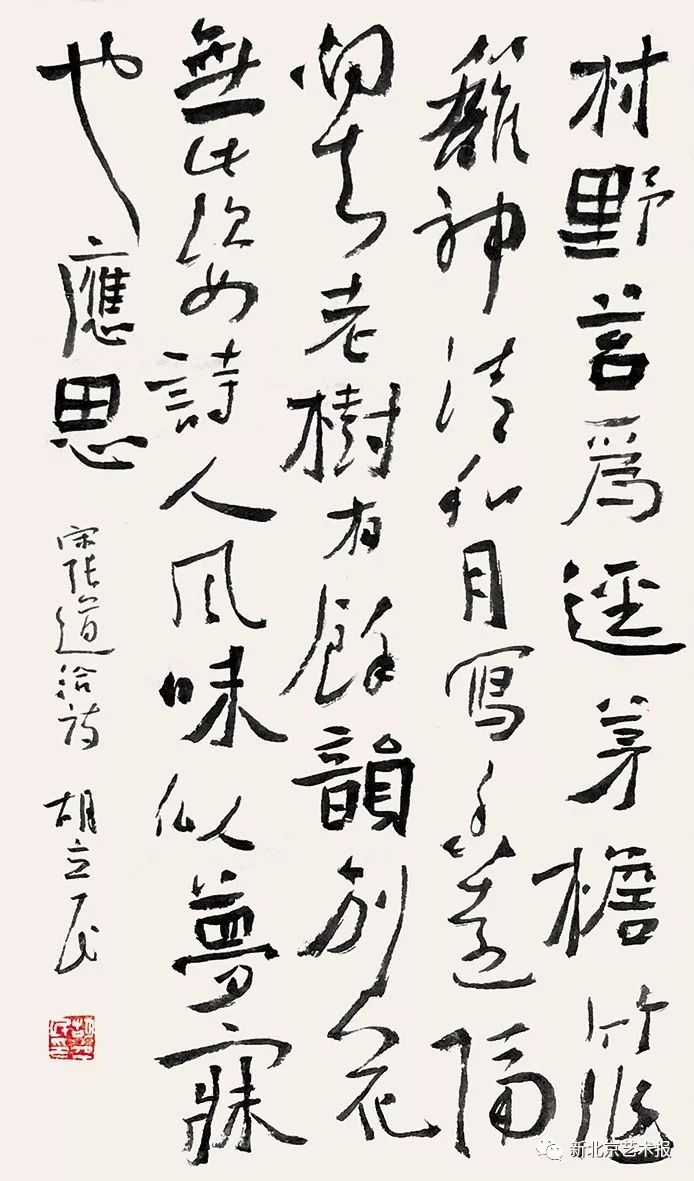 村野苔爲逕茅檐竹作
籬神清和月寫香遠隔
烟知老樹有餘韻別花
無此姿詩人風味似夢寐
也應思
宋張道洽詩 胡立民
新北京艺术报